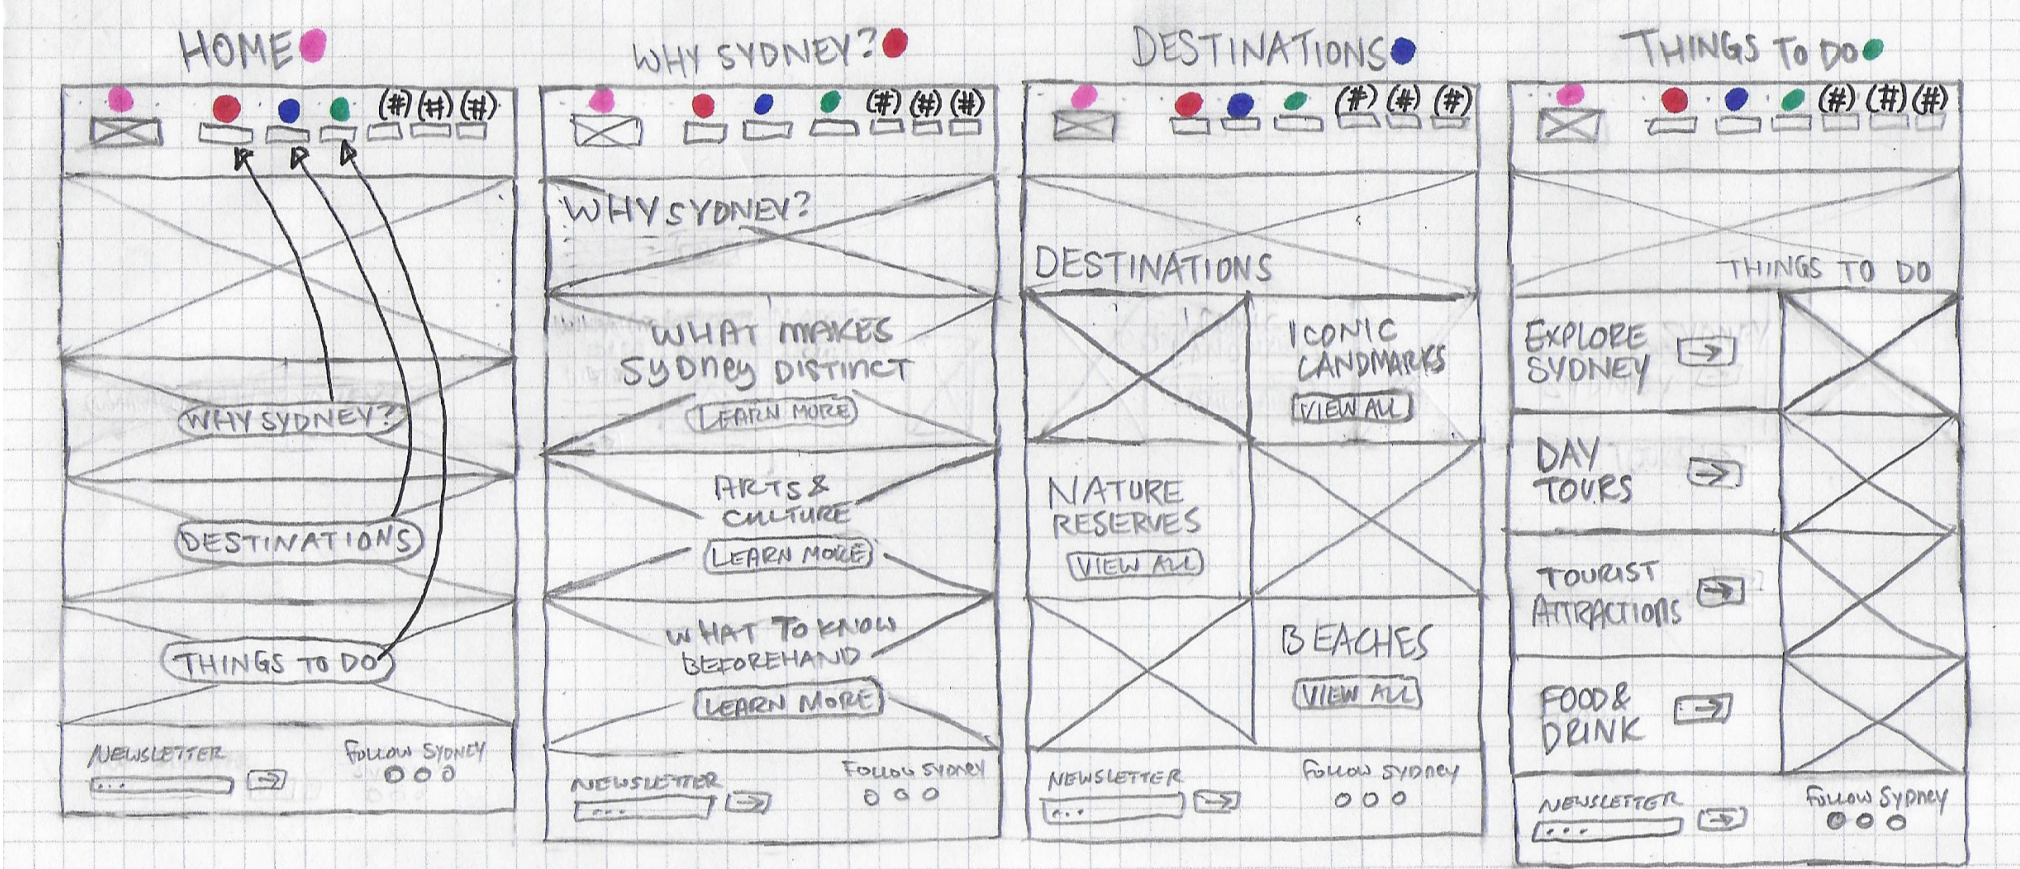 HOME
(#) (#) (#)
WHY SYDNEY?
DESTINATIONS
THINGS TO DO
NEWSLETTER
...
FOLLOW SYDNEY
WHY SYDNEY?
(#) (#) (#)
WHY SYDNEY?
WHAT MAKES
SYDNEY DISTINCT
LEARN MORE
ARTS &
CULTURE
LEARN MORE
WHAT TO KNOW
BEFOREHAND
LEARN MORE
NEWSLETTER
...
FOLLOW SYDNEY
DESTINATIONS
(#) (#) (#)
DESTINATIONS
ICONIC
LANDMARKS
VIEW ALL
NATURE
RESERVES
VIEW ALL
BEACHES
VIEW ALL
NEWSLETTER
...
FOLLOW SYDNEY
THINGS TO DO
(#) (#) (#)
THINGS TO DO
EXPLORE
SYDNEY
DAY
TOURS
TOURIST
ATTRACTIONS
FOOD &
DRINK
NEWSLETTER
...
FOLLOW SYDNEY